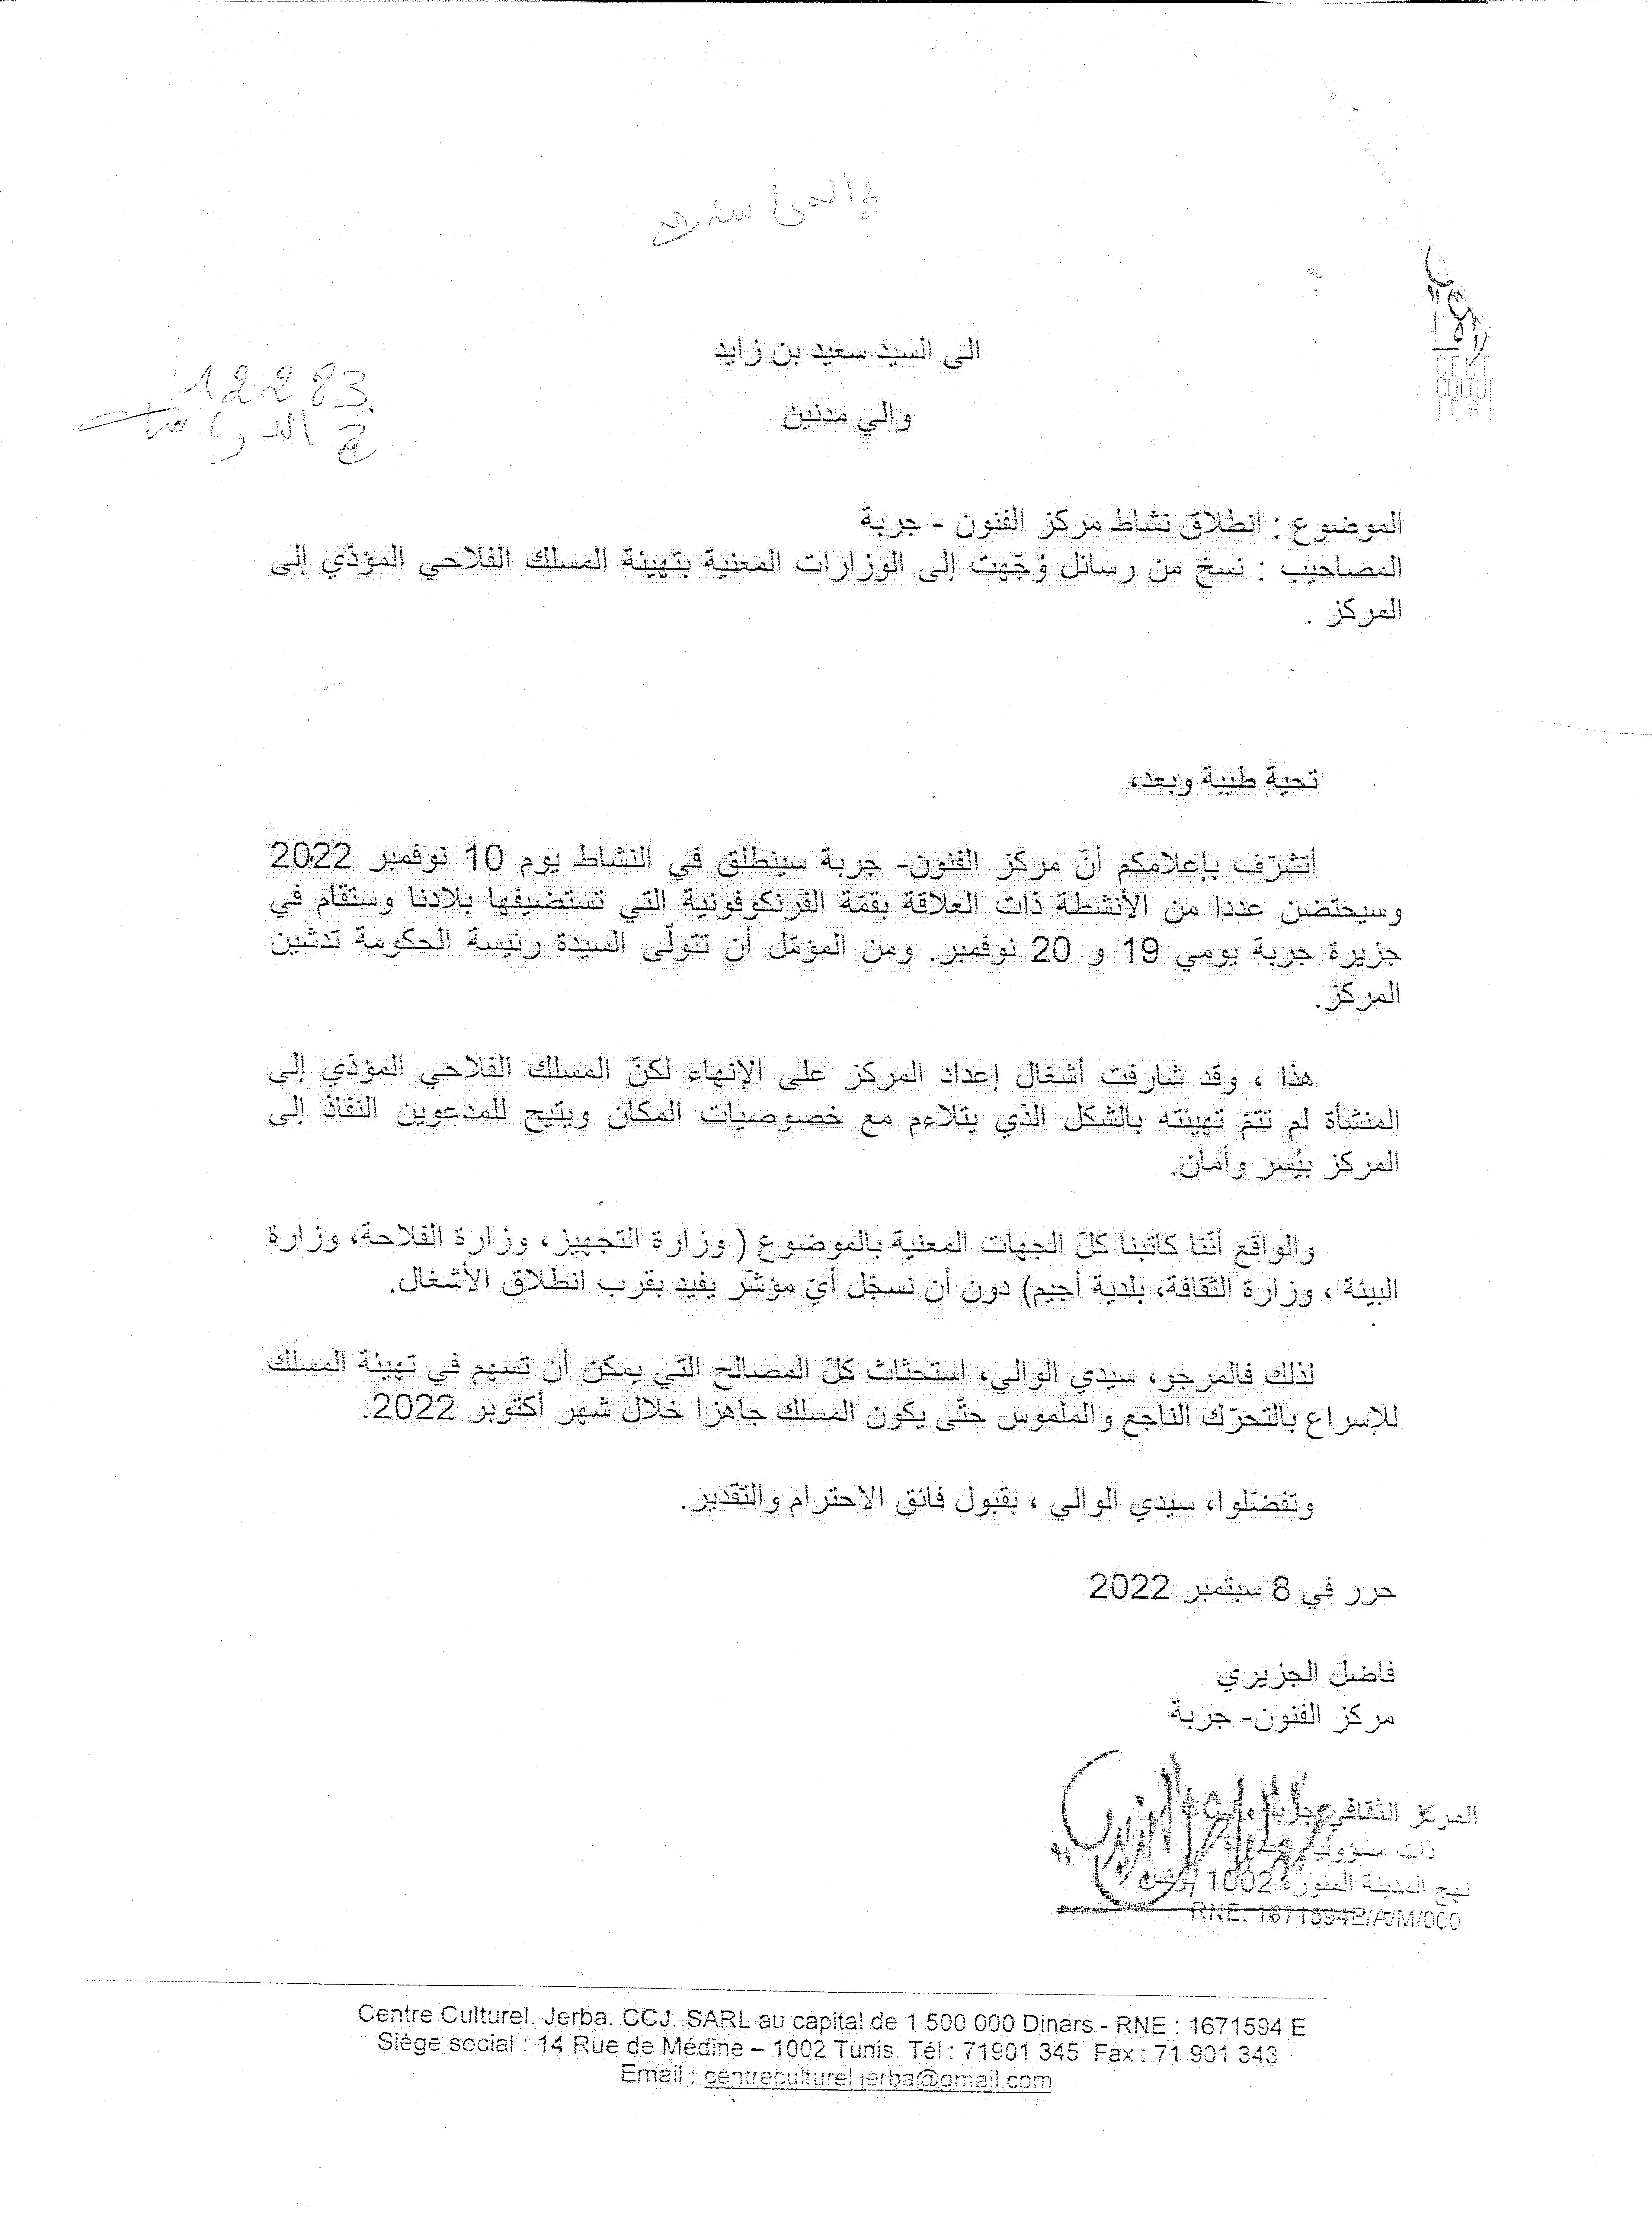 الى السيد سعيد بن زايد
والي مدنين
12283
الموضوع : انطلاق نشاط مركز الفنون - جربة
المصاحيب : نسخ من رسائل وُجّهت إلى الوزارات المعنية بتهيئة المسلك الفلاحي المؤدّي إلى
المركز .
تحية طيبة وبعد،
أتشرّف بإعلامكم أنّ مركز الفنون- جربة سينطلق في النشاط يوم 10 نوفمبر 2022
وسيحتضن عددا من الأنشطة ذات العلاقة بقمّة الفرنكوفونية التي تستضيفها بلادنا وستقام في
جزيرة جربة يومي 19 و 20 نوفمبر. ومن المؤمّل أن تتولّى السيدة رئيسة الحكومة تدشين
المركز.
هذا ، وقد شارفت أشغال إعداد المركز على الإنهاء لكنّ المسلك الفلاحي المؤدّي إلى
المنشأة لم تتمّ تهيئته بالشكل الذي يتلاءم مع خصوصيات المكان ويتيح للمدعوين النفاذ إلى
المركز بيُسر وأمان.
والواقع أنّنا كاتبنا كلّ الجهات المعنية بالموضوع ( وزارة التجهيز، وزارة الفلاحة، وزارة
البيئة ، وزارة الثقافة، بلدية أجيم) دون أن نسجّل أيّ مؤشّر يفيد بقرب انطلاق الأشغال.
لذلك فالمرجو، سيدي الوالي، استحثاث كلّ المصالح التي يمكن أن تسهم في تهيئة المسلك
للإسراع بالتحرّك الناجع والملموس حتّى يكون المسلك جاهزا خلال شهر أكتوبر 2022.
وتفضّلوا، سيدي الوالي ، بقبول فائق الاحترام والتقدير.
حرر في 8 سبتمبر 2022
فاضل الجزيري
مركز الفنون- جربة
المركز الثقافي جربة
ذات مسؤولية
نهج المدينة المنورة 1002 تونس
RNE: 1671594E/A/M/000
Centre Culturel. Jerba. CCJ. SARL au capital de 1 500 000 Dinars - RNE : 1671594 E
Siège social : 14 Rue de Médine – 1002 Tunis. Tél : 71901 345 Fax : 71 901 343
Email : centreculturel.jerba@gmail.com